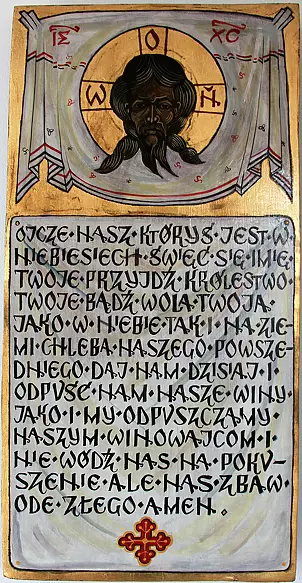 IC XC
O
W N
OJCZE·NASZ·KTÓRYŚ·JEST·W
NIEBIESIECH·ŚWIĘĆ·SIĘ·IMIĘ
TWOJE·PRZYJDŹ·KRÓLESTWO
TWOJE·BĄDŹ·WOLA·TWOJA
JAKO·W·NIEBIE·TAK·I·NA·ZIE-
MI·CHLEBA·NASZEGO·POWSZE-
DNIEGO·DAJ·NAM·DZISIAJ·I
ODPUŚĆ·NAM·NASZE·WINY·
JAKO·I·MY·ODPUSZCZAMY·
NASZYM·WINOWAJCOM·I·
NIE·WÓDŹ·NAS·NA·POKU-
SZENIE·ALE·NAS·ZBAW·
ODE·ZŁEGO·AMEN.